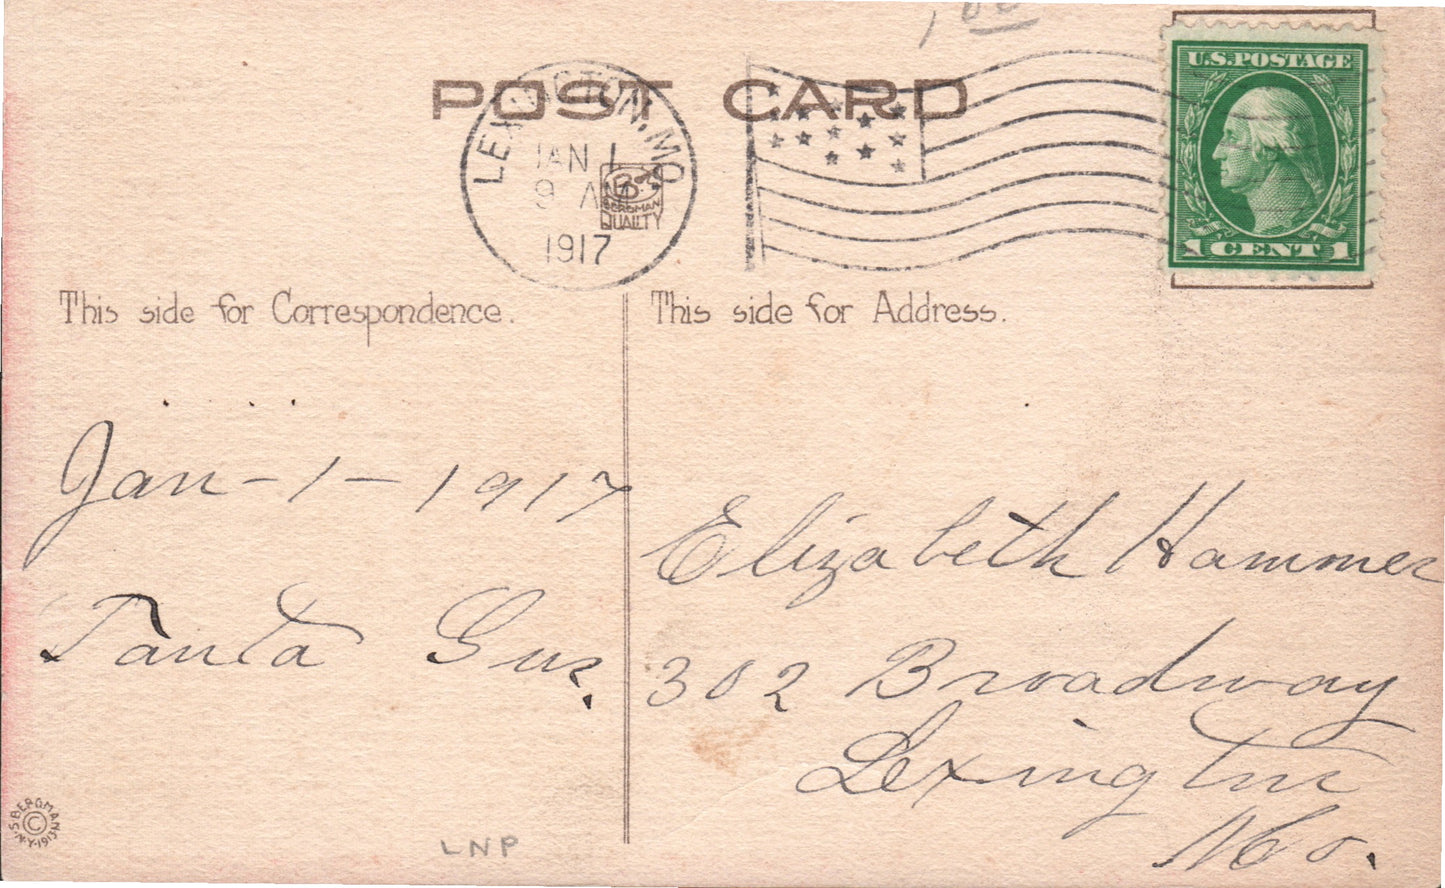 POST CARD
LEXINGTON, MO.
JAN 1
9 AM
1917
BERGMAN
QUALITY
U.S. POSTAGE
1 CENT 1
This side for Correspondence.
This side for Address.
Jan - 1 - 1917
Tanta Gus.
Elizabeth Hammer
302 Broadway
Lexington
Mo.
S. BERGMAN N.Y. 1913
©
LNP